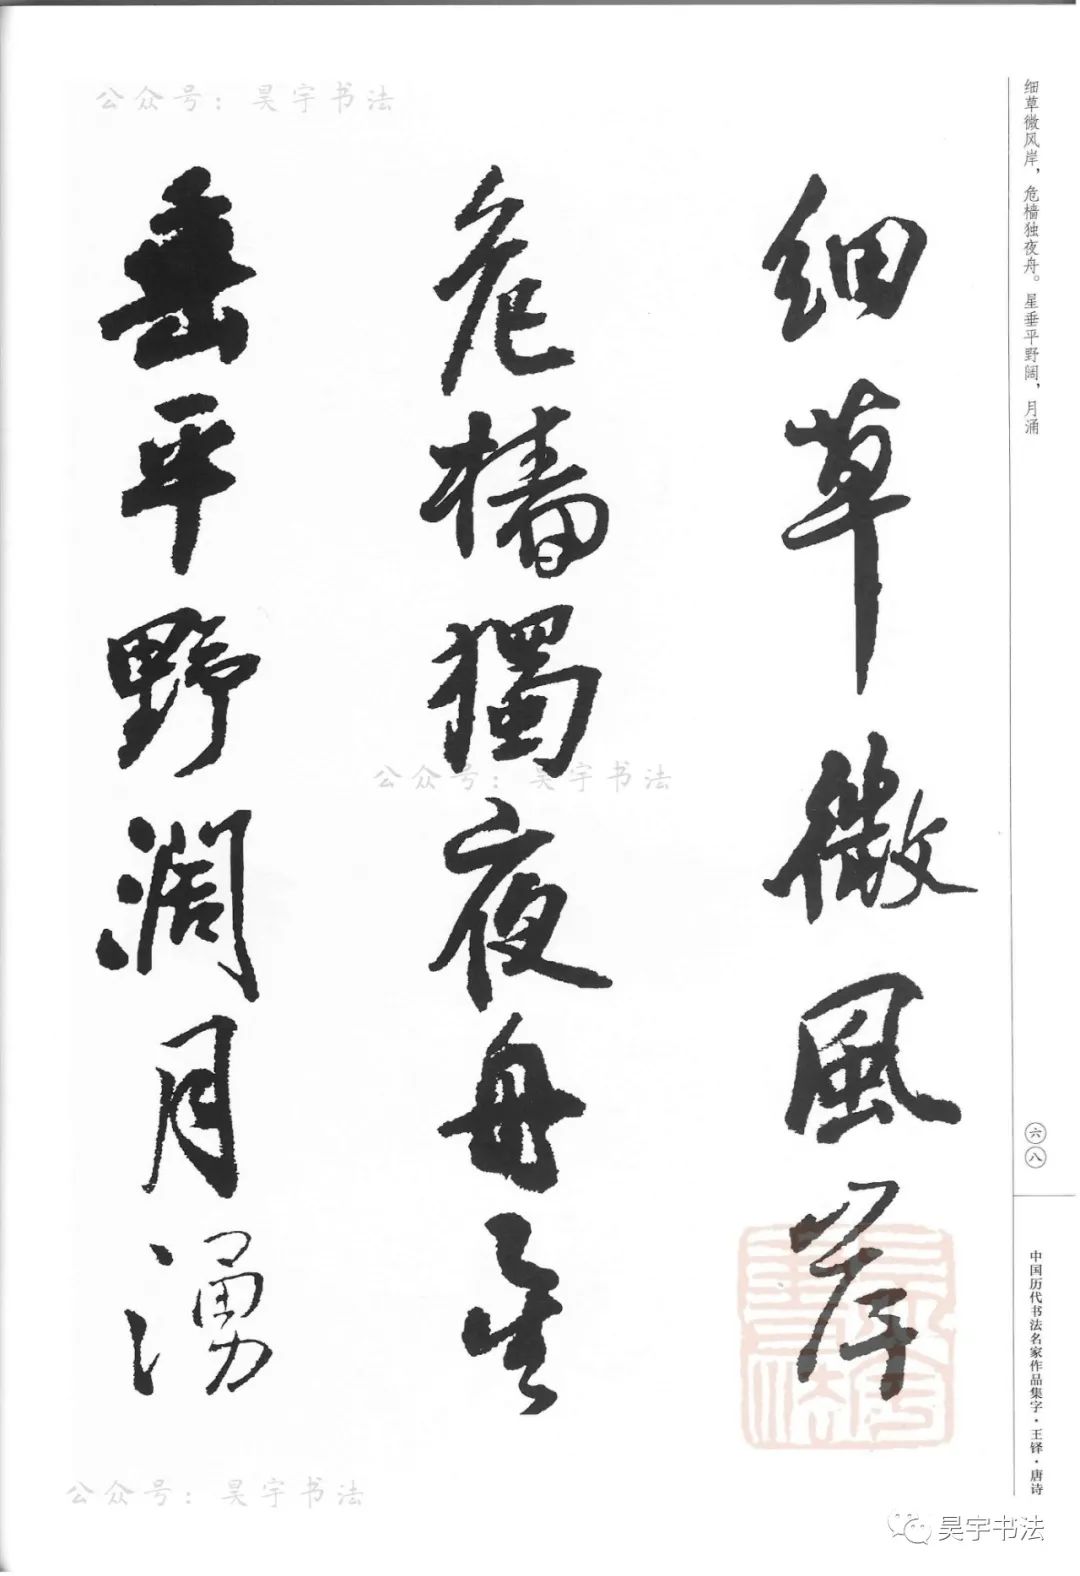 公众号：昊宇书法
细草微风岸，危樯独夜舟。星垂平野阔，月涌
細草微風岸
危檣獨夜舟星
垂平野濶月湧
公众号：昊宇书法
六八
中国历代书法名家作品集字·王铎·唐诗
公众号：昊宇书法
昊宇书法